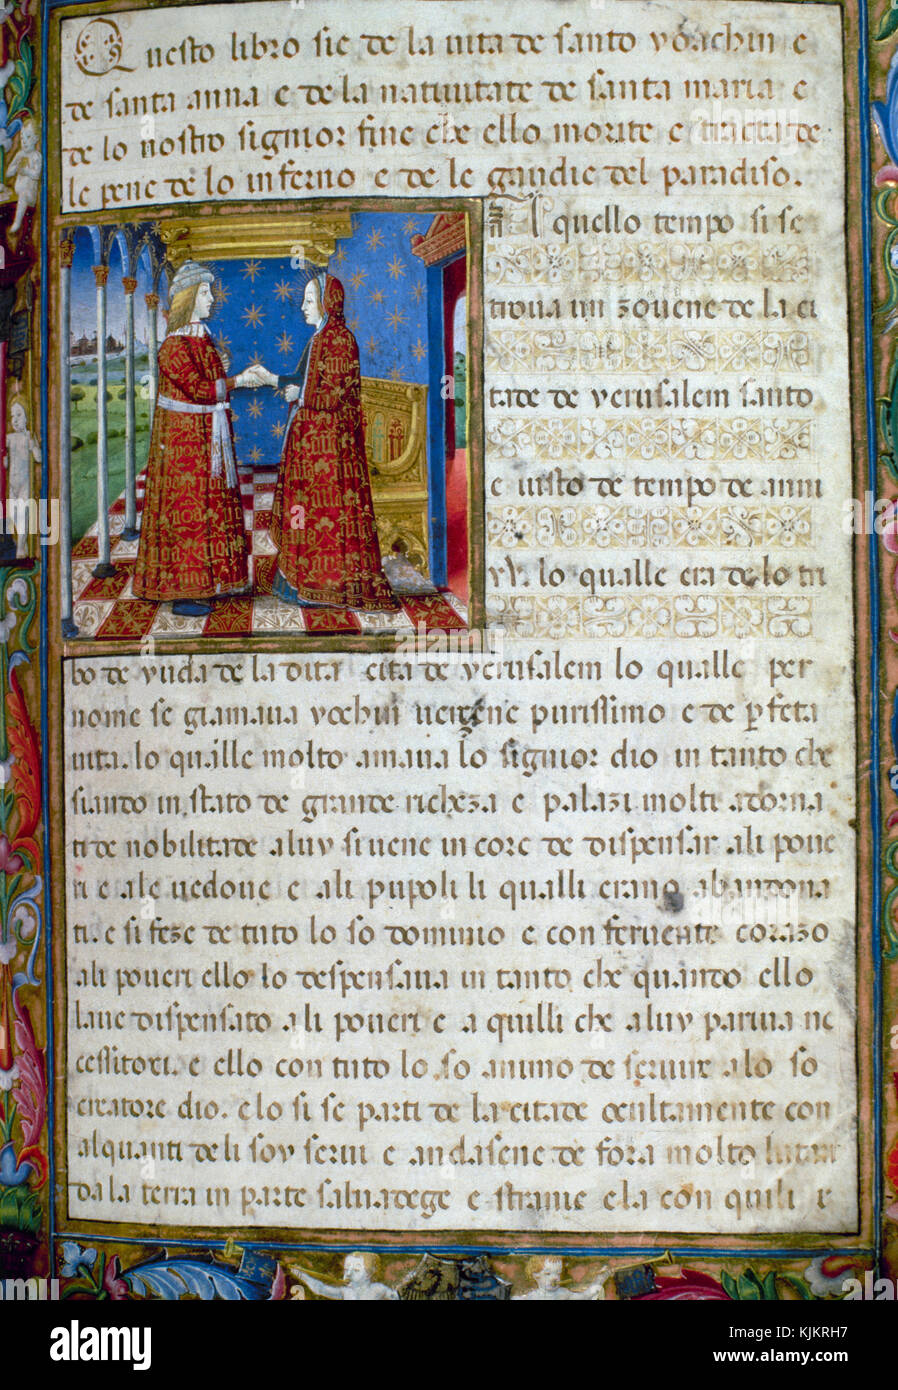 Questo libro sie de la uita de santo yoachin e
de santa anna e de la natiuitate de santa maria e
de lo nostro signior fine che ello morite e tractade
le pene de lo inferno e de le gaudie del paradiso.
In quello tempo si se
troua un zouene de la ci
tade de yerusalem santo
e uisto de tempo de anni
xv. lo qualle era de lo tri
bo de yuda de la dita cita de yerusalem lo qualle per
nome se giamaua yochin uergene purissimo e de perfeta
uita. lo qualle molto amaua lo signior dio in tanto che
siando in stato de grande richeza e palazi molti adorna
ti de nobilitade a luy si uene in core de dispensar ali poue
ri e ale uedoue e ali pupoli li qualli erano abandona
ti. e si feze de tuto lo so dominio e con feruente corazo
ali poueri ello lo despensaua in tanto che quando ello
laue dispensato ali poueri e a quilli che a luy pariua ne
cessitori. e ello con tuto lo so animo de seruire a lo so
creatore dio. e lo si se parti de la citade ocultamente con
alquanti de li soy serui e andasene de fora molto lutan
da la terra in parte saluadege e stranie e la con quili
alamy
alamy
Image ID: KJKRH7
www.alamy.com